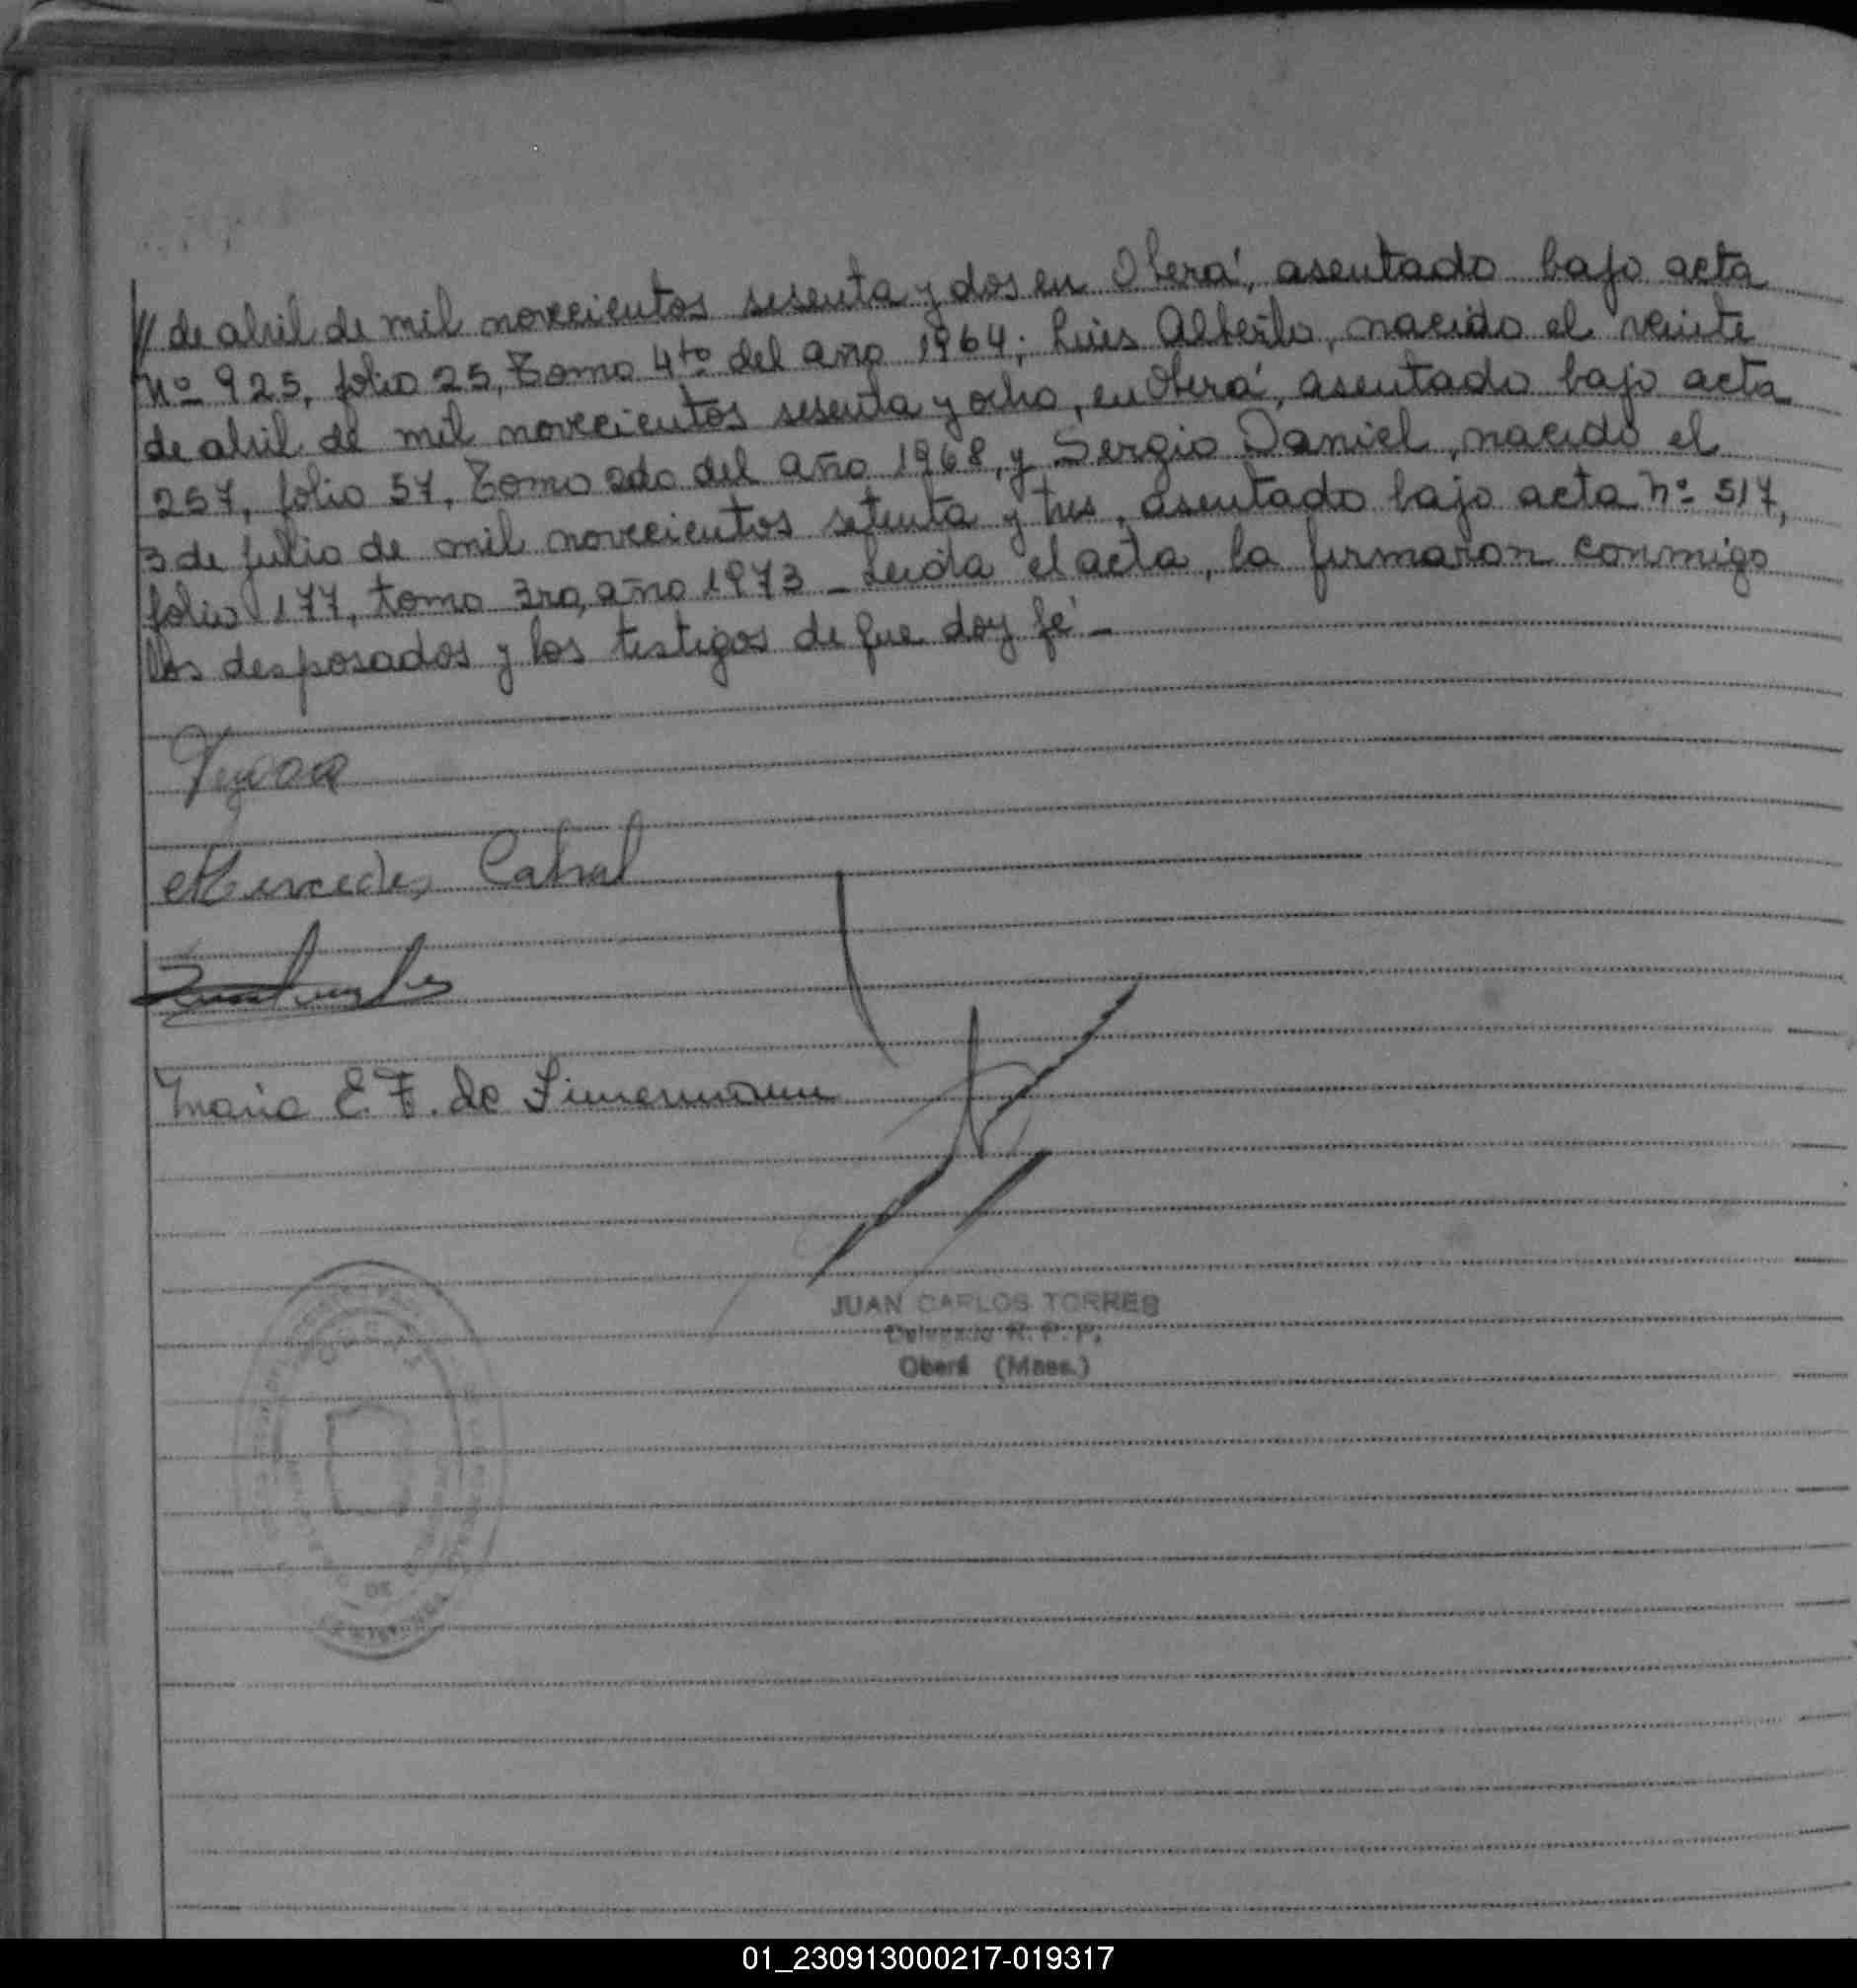 // de abril de mil novecientos sesenta y dos en Oberá, asentado bajo acta
Nº 925, folio 25, Tomo 4to del año 1964; Luis Alberto, nacido el veinte
de abril de mil novecientos sesenta y ocho, en Oberá, asentado bajo acta
257, folio 57, Tomo 2do del año 1968, y Sergio Daniel, nacido el
3 de julio de mil novecientos setenta y tres, asentado bajo acta nº 517,
folio 177, tomo 3ro, año 1973 - Leida el acta, la firmaron conmigo
los desposados y los testigos de que doy fé -
Mercedes Cabral
Maria E. F. de Simermann
JUAN CARLOS TORRES
Delegado R. P. P.
Oberá (Mnes.)
DE
01_230913000217-019317